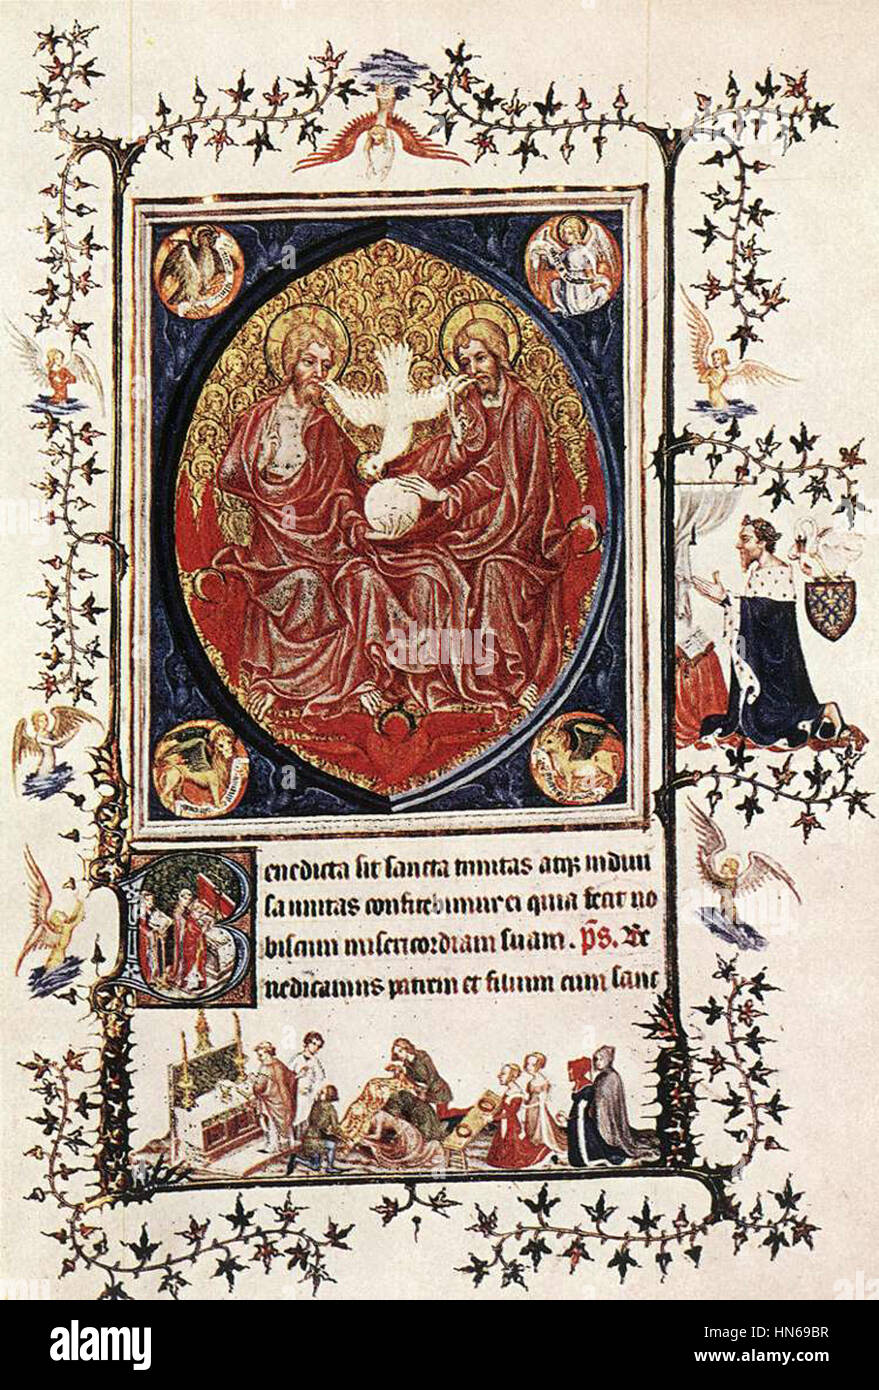 Benedicta sit sancta trinitas atq; indiui
sa unitas confitebimur ei quia fecit no
biscum misericordiam suam. ps. Be
nedicamus patrem et filium cum sanc
alamy stock photo
HN69BR
www.alamy.com